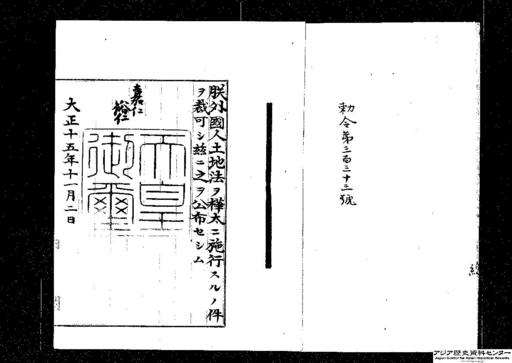 勅令第三百三十三號
朕外國人土地法ヲ樺太ニ施行スルノ件
ヲ裁可シ茲ニ之ヲ公布セシム
嘉仁
裕仁
天皇
御璽
大正十五年十一月二日
アジア歴史資料センター
Japan Center for Asian Historical Records